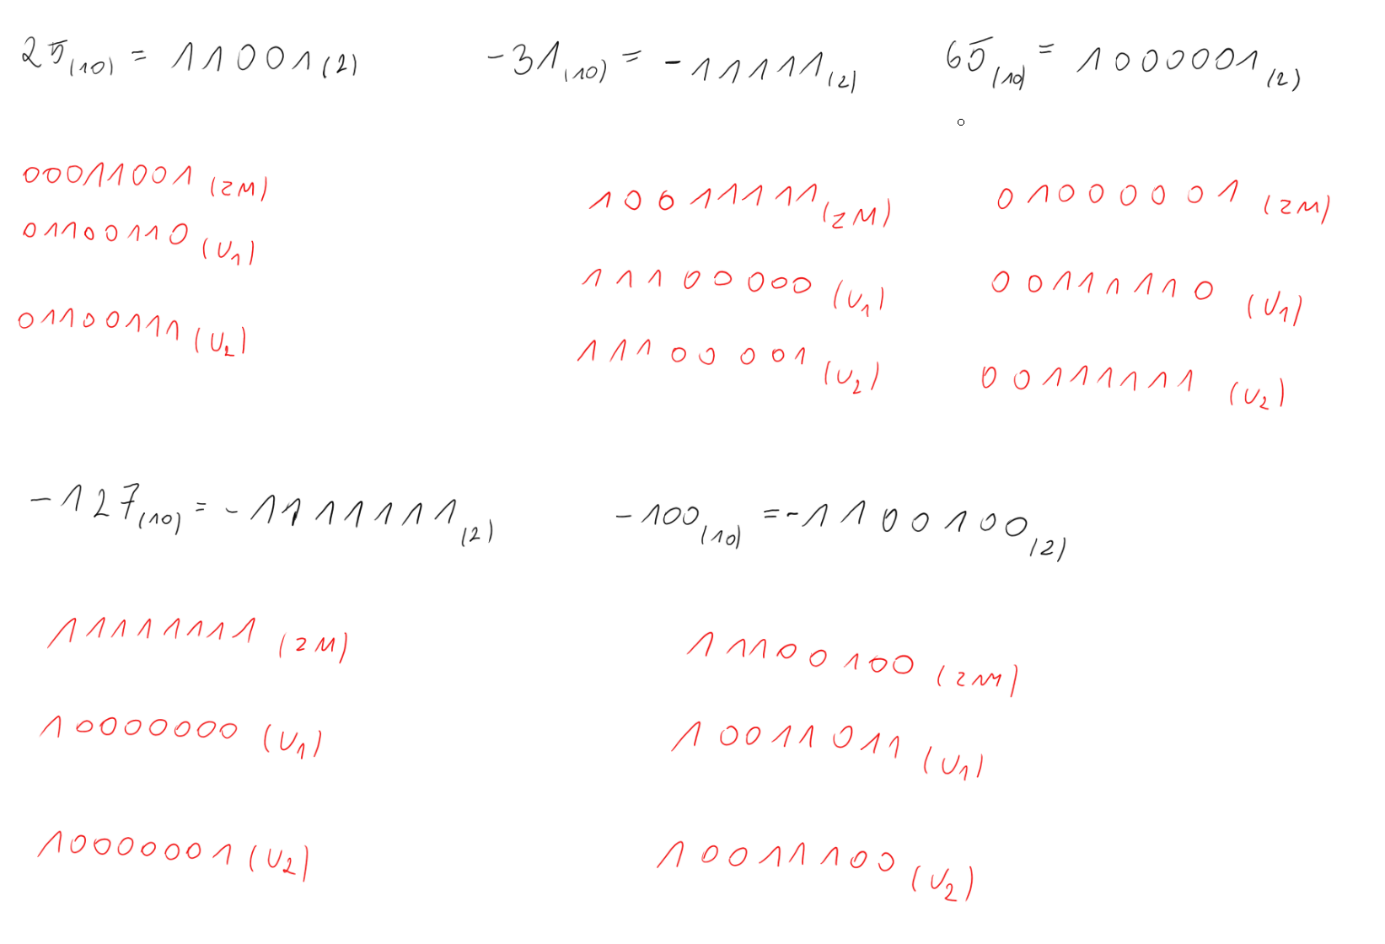 25(10) = 11001(2)
00011001 (ZM)
01100110 (U1)
01100111 (U2)
-31(10) = -11111(2)
10011111(ZM)
11100000 (U1)
11100001 (U2)
65(10) = 1000001(2)
01000001 (ZM)
00111110 (U1)
00111111 (U2)
-127(10) = -1111111(2)
11111111 (ZM)
10000000 (U1)
10000001 (U2)
-100(10) = -1100100(2)
11100100 (ZM)
10011011 (U1)
10011100 (U2)